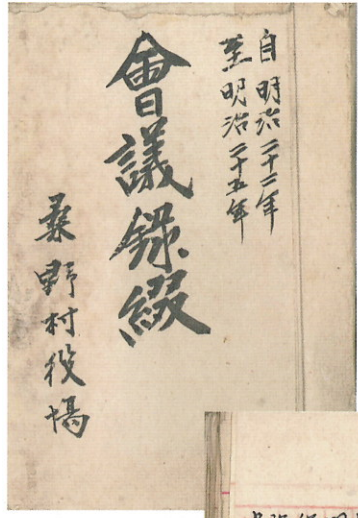 自明治二十二年
至明治二十五年
會議録綴
桑野村役場